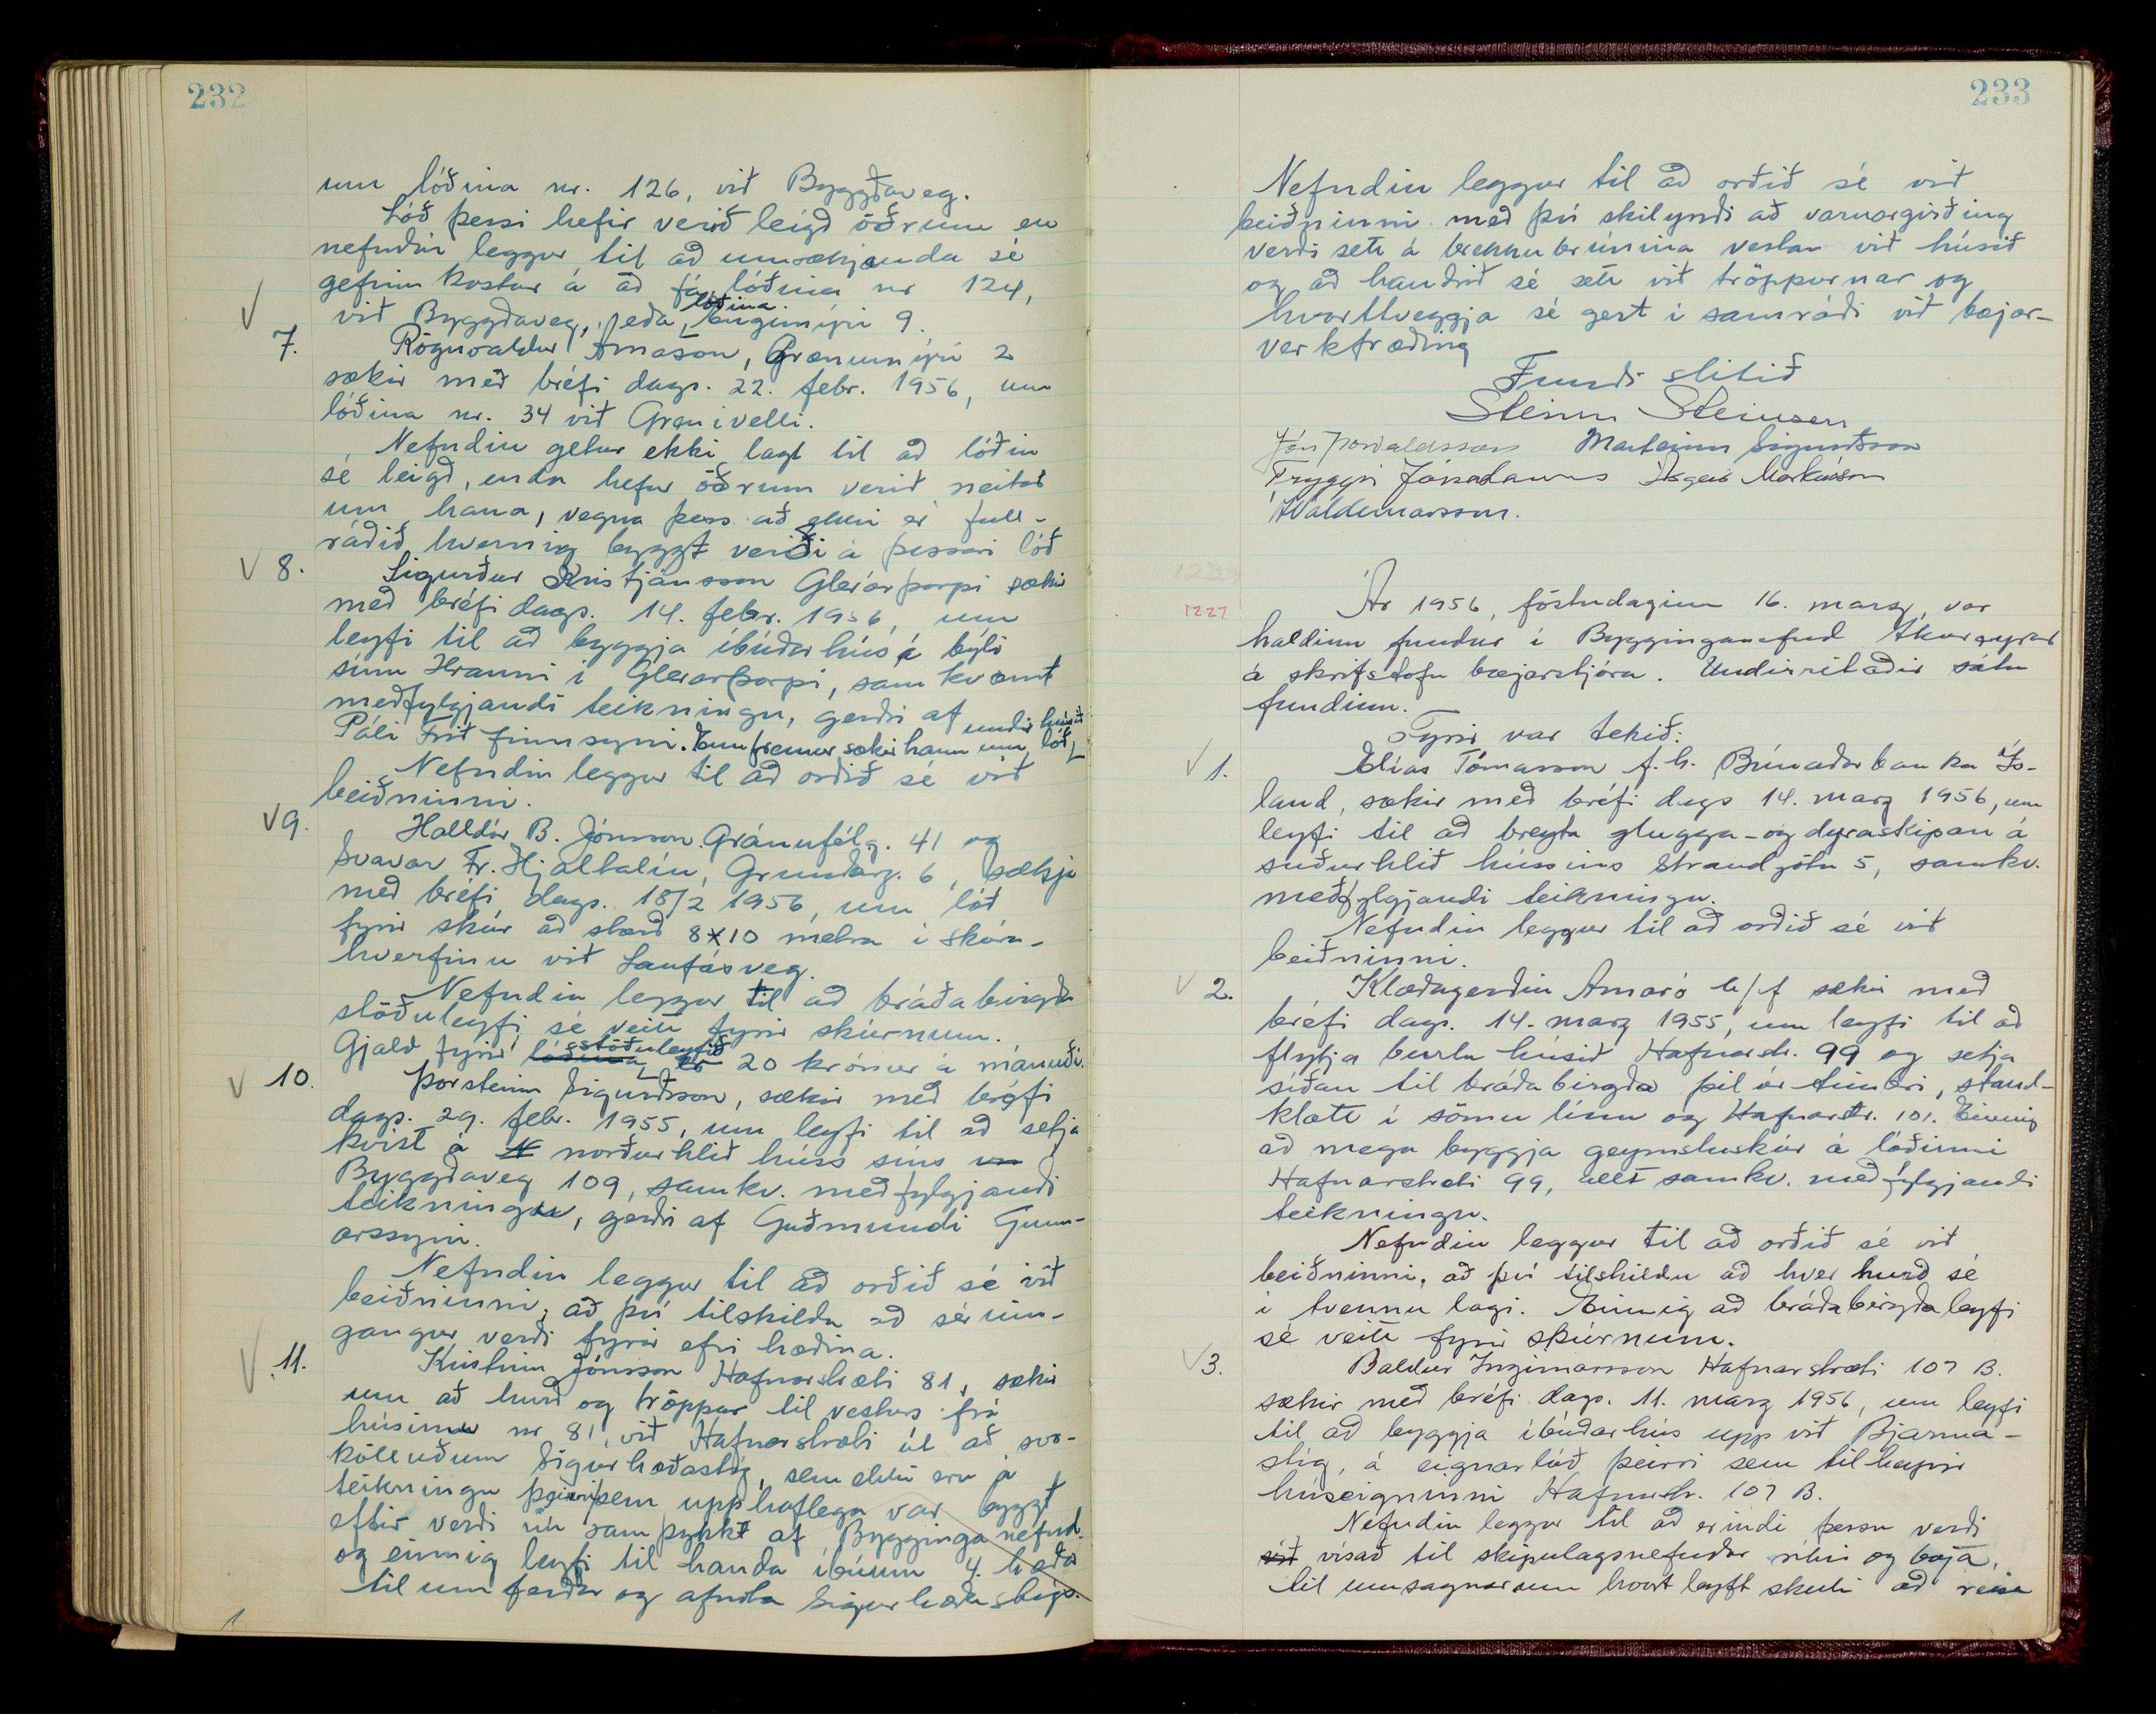 232
um lóðina nr. 126, við Byggðaveg.
Lóð þessi hefir verið leigð öðrum en
nefndin leggur til að umsækjanda sé
gefinn kostur á að fá lóðina nr 124,
við Byggðaveg, eða lóðina Engimýri 9.
7. Rögnvaldur Árnason, Grænumýri 2
sækir með bréfi dags. 22. febr. 1956, um
lóðina nr. 34 við Grænuvelli.
Nefndin getur ekki lagt til að lóðin
sé leigð, enda hefur öðrum verið neitað
um hana, vegna þess að ekki er full-
ráðið hvernig byggt verði á þessari lóð
8. Sigurður Kristjánsson Glerárþorpi sækir
með bréfi dags. 14. febr. 1956, um
leyfi til að byggja íbúðarhús á býli
sínu Hrauni í Glerárþorpi, samkvæmt
meðfylgjandi teikningu, gerðri af
Páli Friðfinnssyni. Ennfremur sækir hann um lóð
undir húsið
Nefndin leggur til að orðið sé við
beiðninni.
9. Halldór B. Jónsson Gránufélg. 41 og
Svavar Fr. Hjaltalín, Grundarg. 6, sækja
með bréfi dags. 18/2 1956, um lóð
fyrir skúr að stærð 8x10 metra í skúra-
hverfinu við Laufásveg.
Nefndin leggur til að bráðabirgða
stöðuleyfi sé veitt fyrir skúrnum.
Gjald fyrir lóðina stöðuleyfið er 20 krónur á mánuði.
10. Þorsteinn Sigurðsson, sækir með bréfi
dags. 29. febr. 1955, um leyfi til að setja
kvist á N norðurhlið húss síns
Byggðaveg 109, samkv. meðfylgjandi
teikningu, gerðri af Guðmundi Gunn-
arssyni.
Nefndin leggur til að orðið sé við
beiðninni, að því tilskildu að sérinn-
gangur verði fyrir efri hæðina.
11. Kristinn Jónsson Hafnarstræti 81, sækir
um að hurð og tröppur til vesturs frá
húsinu nr 81, við Hafnarstræti út að svo-
kölluðum Sigurhæðastíg, sem ekki eru á
teikningu þeirri sem upphaflega var byggt
eftir verði nú samþykkt af Bygginganefnd.
og einnig leyfi til handa íbúum 4. hæðar
til umferðar og afnota Sigurhæðastígs.
233
Nefndin leggur til að orðið sé við
beiðninni með því skilyrði að varnargirðing
verði sett á brekkubrúnina vestan við húsið
og að handrið sé sett við tröppurnar og
hvorttveggja sé gert í samráði við bæjar-
verkfræðing
Fundi slitið
Steinn Steinsen
Jón Þorvaldsson Marteinn Sigurðsson
Tryggvi Jónatansson Ásgeir Markússon
ÁValdemarsson.
1227
Ár 1956, föstudaginn 16. marz, var
haldinn fundur í Bygginganefnd Akureyrar
á skrifstofu bæjarstjóra. Undirritaðir sátu
fundinn.
Fyrir var tekið:
1. Elías Tómasson f.h. Búnaðarbanka Ís-
land, sækir með bréfi dags 14. marz 1956, um
leyfi til að breyta glugga- og dyraskipan á
suðurhlið hússins Strandgötu 5, samkv.
meðfylgjandi teikningu.
Nefndin leggur til að orðið sé við
beiðninni.
2. Klæðagerðin Amaró h/f sækir með
bréfi dags. 14. marz 1955, um leyfi til að
flytja burtu húsið Hafnarstr. 99 og setja
síðan til bráðabirgða þil úr timbri, stand-
klætt í sömu línu og Hafnarstr. 101. Einnig
að mega byggja geymsluskúr á lóðinni
Hafnarstræti 99, allt samkv. meðfylgjandi
teikningu.
Nefndin leggur til að orðið sé við
beiðninni, að því tilskildu að hver hurð sé
í tvennu lagi. Einnig að bráðabirgðaleyfi
sé veitt fyrir skúrnum.
3. Baldur Ingimarsson Hafnarstræti 107 B.
sækir með bréfi dags. 11. marz 1956, um leyfi
til að byggja íbúðarhús upp við Bjarma-
stíg, á eignarlóð þeirri sem tilheyrir
húseigninni Hafnarstr. 107 B.
Nefndin leggur til að erindi þessu verði
vísað til skipulagsnefndar ríkis og bæja,
til umsagnar um hvort leyft skuli að reisa